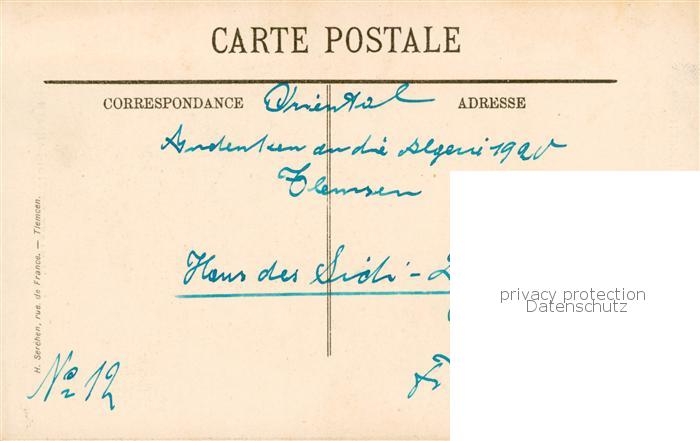 CARTE POSTALE
CORRESPONDANCE
ADRESSE
Oriental
Andenken an die Algerie 1920
Tlemsen
Haus des Sidi -
privacy protection
Datenschutz
No 12
H. Serehen, rue de France. — Tlemcen.